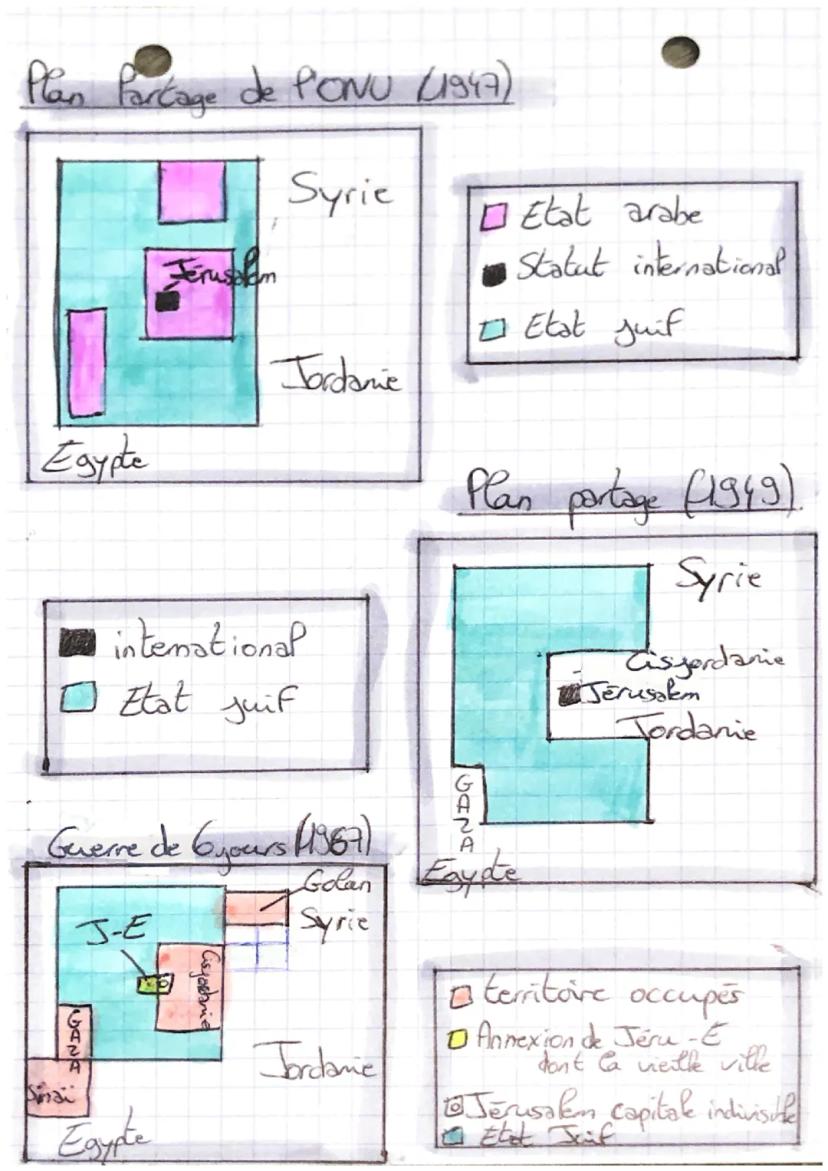 Plan Partage de l'ONU (1947)
Syrie
Jérusalem
Jordanie
Egypte
Etat arabe
Statut international
Etat juif
Plan partage (1949)
Syrie
Cisjordanie
Jérusalem
Jordanie
GAZA
Egypte
international
Etat juif
Guerre de 6 jours (1967)
Golan
Syrie
J-E
Cisjordanie
GAZA
Sinaï
Jordanie
Egypte
territoire occupés
Annexion de Jéru-E
dont la vieille ville
Jérusalem capitale indivisible
Etat Juif